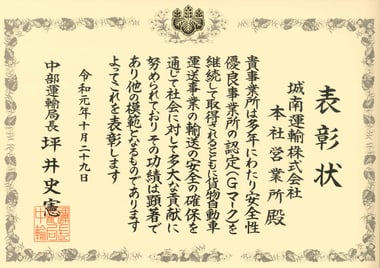 表彰状
城南運輸株式会社
本社営業所 殿
貴事業所は多年にわたり安全性
優良事業所の認定(Gマーク)を
継続して取得されるとともに貨物自動車
運送事業の輸送の安全の確保を
通じて社会に対して多大な貢献に
努められておりその功績は顕著で
あり他の模範となるものであります
よってこれを表彰します
令和元年十月二十九日
中部運輸局長 坪井史憲